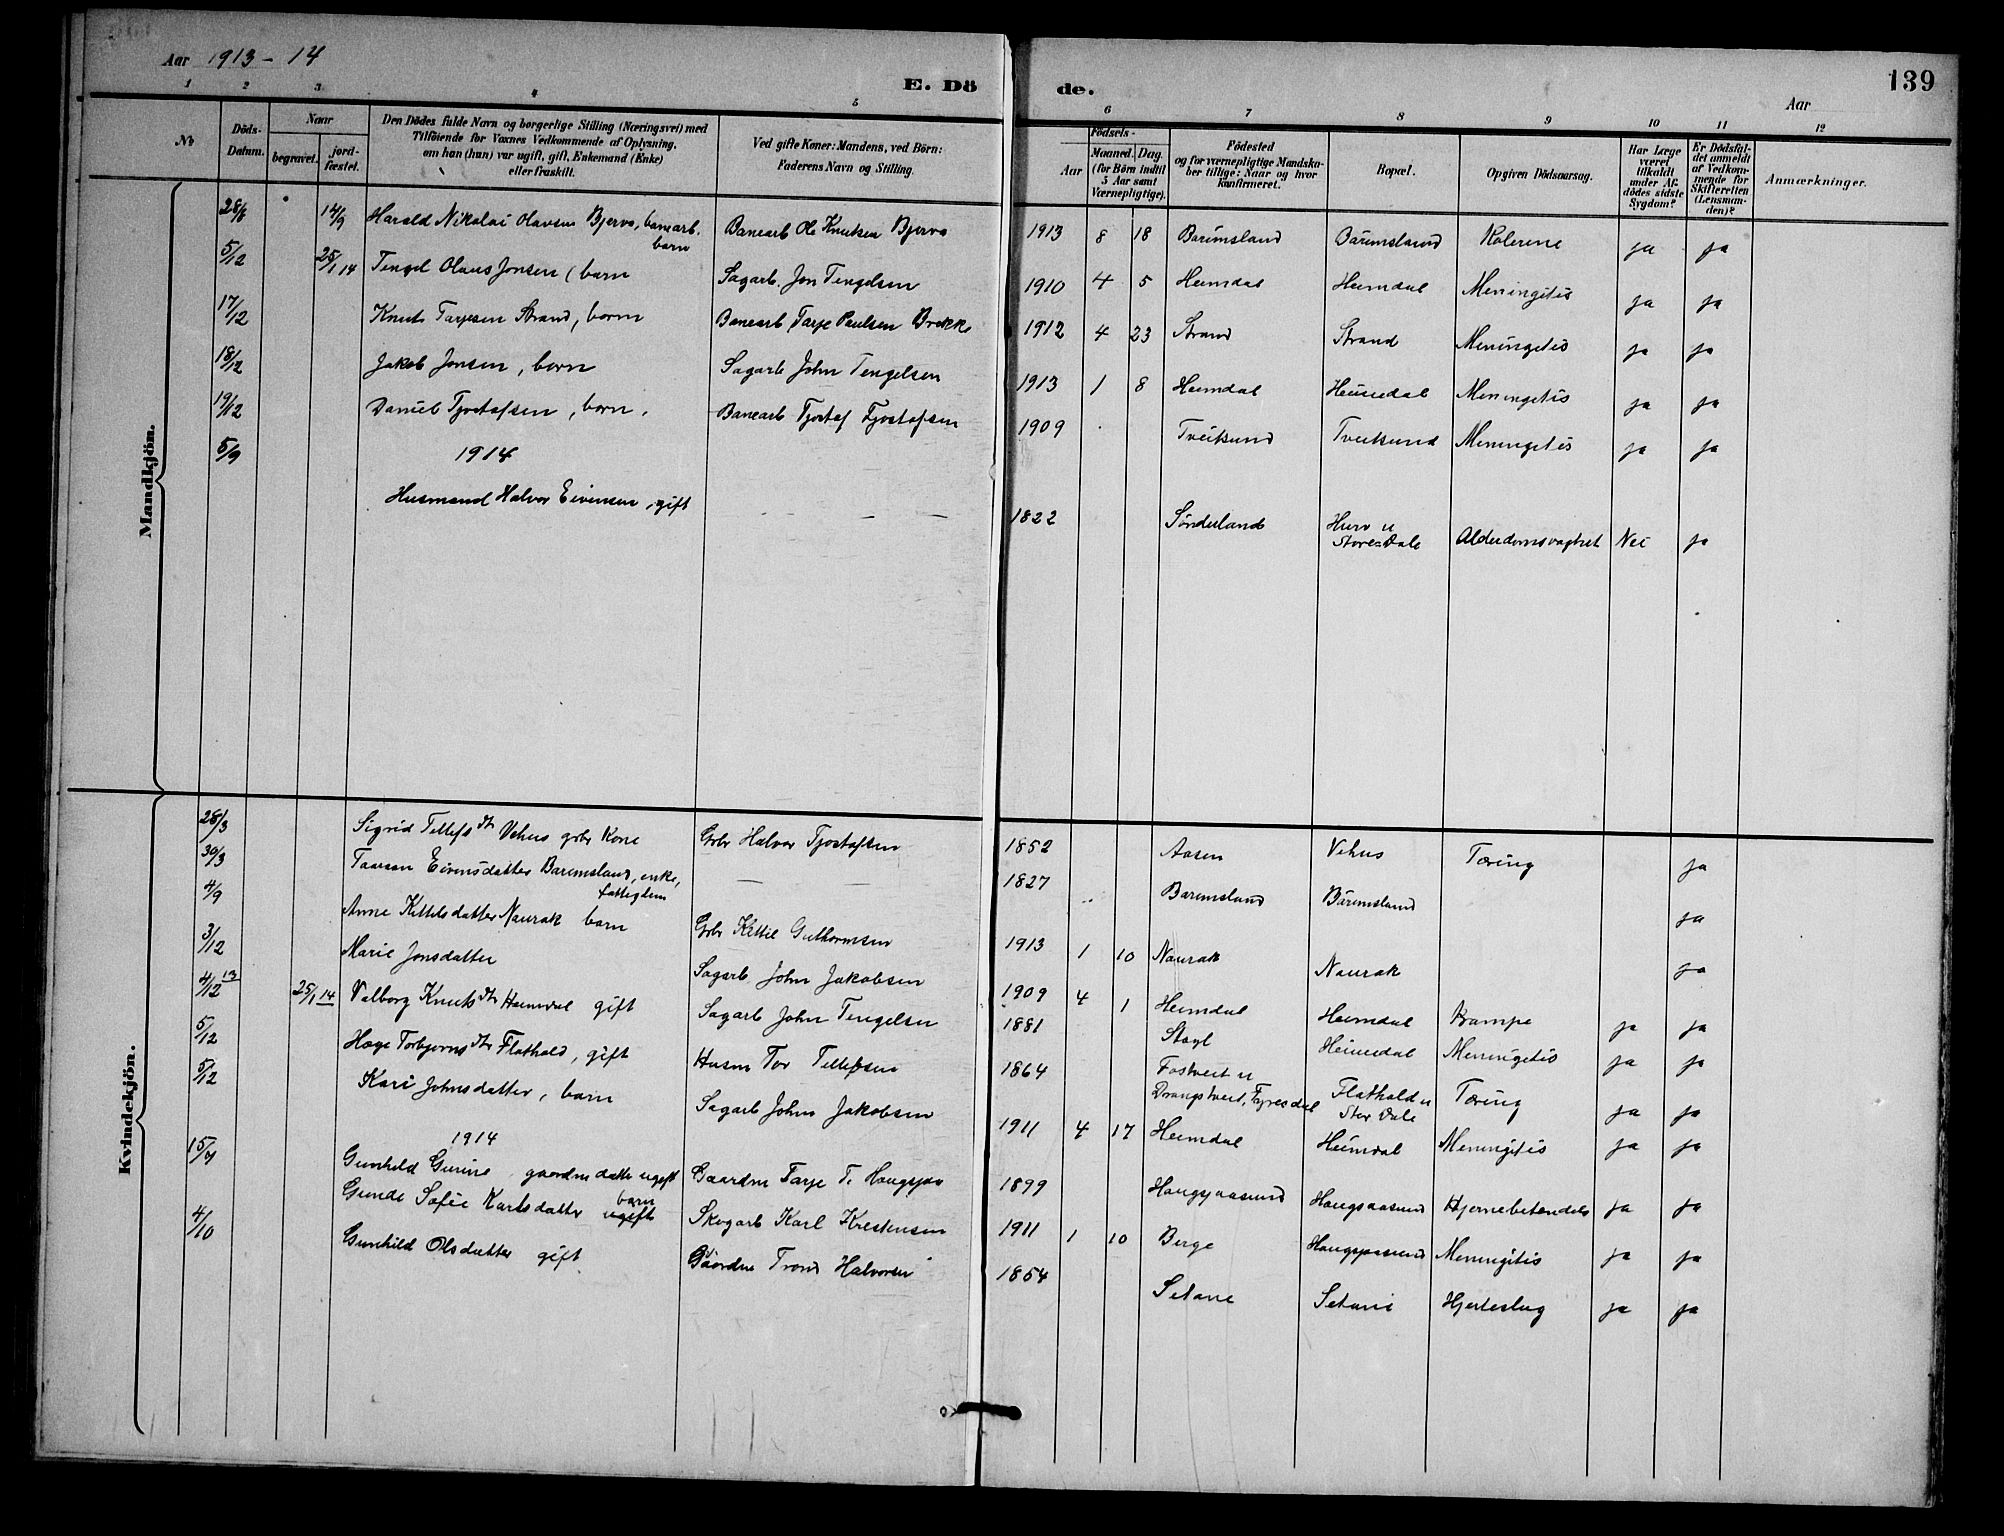 Aar 1913 - 14
E. Dö de.
139
Aar
1 2 3 4 5 6 7 8 9 10 11 12
No
Döds-Datum.
Naar
begravet. jord-fæstet.
Den Dödes fulde Navn og borgerlige Stilling (Næringsvei) med
Tilföiende for Voxnes Vedkommende af Oplysning,
om han (hun) var ugift, gift, Enkemand (Enke)
eller fraskilt.
Ved gifte Koner: Mandens, ved Börn:
Faderens Navn og Stilling.
Födsels-
Aar Maaned. Dag.
(for Börn indtil
5 Aar samt
Værnepligtige).
Födested
og for værnepligtige Mandska-
ber tillige: Naar og hvor
konfirmeret.
Bopæl.
Opgiven Dödsaarsag.
Har Læge
været
tilkaldt
under Af-
dödes sidste
Sygdom?
Er Dödsfal-
det anmeldt
af Vedkom-
mende for
Skifteretten
(Lensman-
den)?
Anmærkninger.
Mandkjön.
28/8 14/9 Harald Nikolai Olavsen Bjervo, banearb. barn Banearb Ole Knutsen Bjervo 1913 8 18 Barumsland Barumsland Kolerine ja ja
5/12 25/1 14 Tengel Olaus Jonsen ( barn Sagarb. Jon Tengelsen 1910 4 5 Heimdal Heimdal Meningitis ja ja
17/12 Knut Tarjesen Strand, barn Banearb Tarje Paulsen Brekke 1912 4 23 Strand Strand Meningitis ja ja
18/12 Jakob Jonsen, barn Sagarb John Tengelsen 1913 1 8 Heimdal Heimdal Meningitis ja ja
19/12 Daniel Tjostafsen, barn, Banearb Tjostaf Tjostafsen 1909 Tveitsund Tveitsund Meningitis ja ja
5/9 1914
Husmand Halvor Eivensen, gift — — — 1822 Sönderland Hurv u Store Dale Alderdomsvaghet Nei ja
Kvindekjön.
28/3 Sigrid Tellefs dtr Vehus gbr kone Gbr Halvor Tjostafsen 1852 Aasen Vehus Tæring ja
30/3 Taaraan Eivensdatter Barumsland, enke, fattiglem — — 1827 Barumsland Barumsland ja
4/9 Anne Kittilsdatter Naurak barn Gbr Kittil Guthormsen 1913 1 10 Naurak Naurak ja
3/12 Marie Jonsdatter Sagarb John Jakobsen 1909 4 1 Heimdal Heimdal Krampe ja ja
4/12 13 25/1 14 Valborg Knuts dtr Heimdal gift Sagarb John Tengelsen 1881 Heimdal Meningitis ja ja
5/12 Hæge Torbjörns dtr Flathold, gift Husm Tor Tellefsen 1864 Fostveit u Drangstveit, Fyresdal Flathold u Stor Dale Tæring ja ja
5/12 Kari Johnsdatter, barn Sagarb John Jakobsen 1911 4 17 Heimdal Heimdal Meningitis ja ja
1914
Gunhild Gurine, gaardm datter ugift Gaardm Tarje T. Haugsjaa 1899 Haugsjaasund Haugsjaasund Hjernebetendels ja ja
Gunde Sofie Karlsdatter ugift barn Skogarb Karl Kristensen 1911 1 10 Berge Haugsjaasund Meningitis ja ja
4/10 Gunhild Olsdatter gift Gaardm Trond Halvorsen 1854 Setane Setane Hjerteslag ja ja